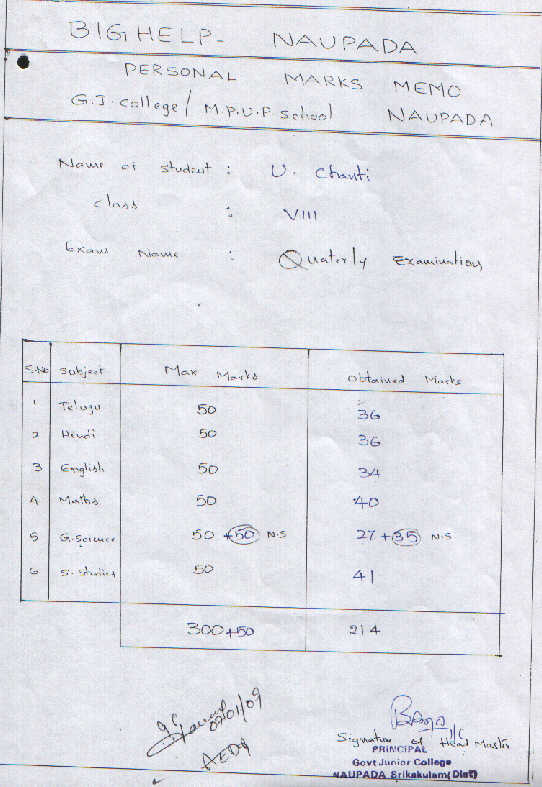 BIG HELP- NAUPADA
PERSONAL MARKS MEMO
G.J. College / M.P.U.P. School NAUPADA
Name of student : U. Chanti
Class : VIII
Exam Name : Quaterly Examination
S.No Subject Max Marks Obtained Marks
1 Telugu 50 36
2 Hendi 50 36
3 English 50 34
4 Maths 50 40
5 G.Science 50 +50 N.S 27 +35 N.S
6 S.Studies 50 41
300+50 214
02/01/09
Signature of Head Mastr
PRINCIPAL
Govt Junior College
NAUPADA Srikakulam(Dist)